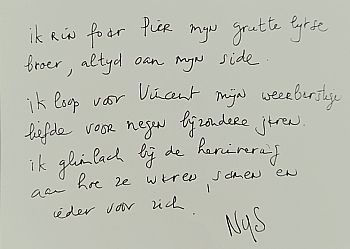 ik rin foar Pier myn grutte lytse
broer, altyd oan myn side.
ik loop voor Vincent mijn weerbarstige
liefde voor negen bijzondere jaren.
ik glimlach bij de herinnering
aan hoe ze waren, samen en
ieder voor zich.
NYS